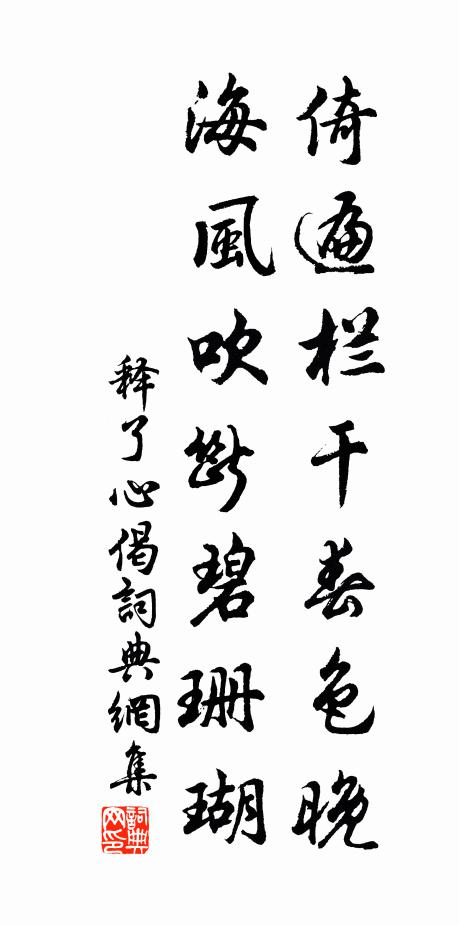 倚遍栏干春色晚
海風吹断碧珊瑚
释了心偈詞典網集
詞典网印